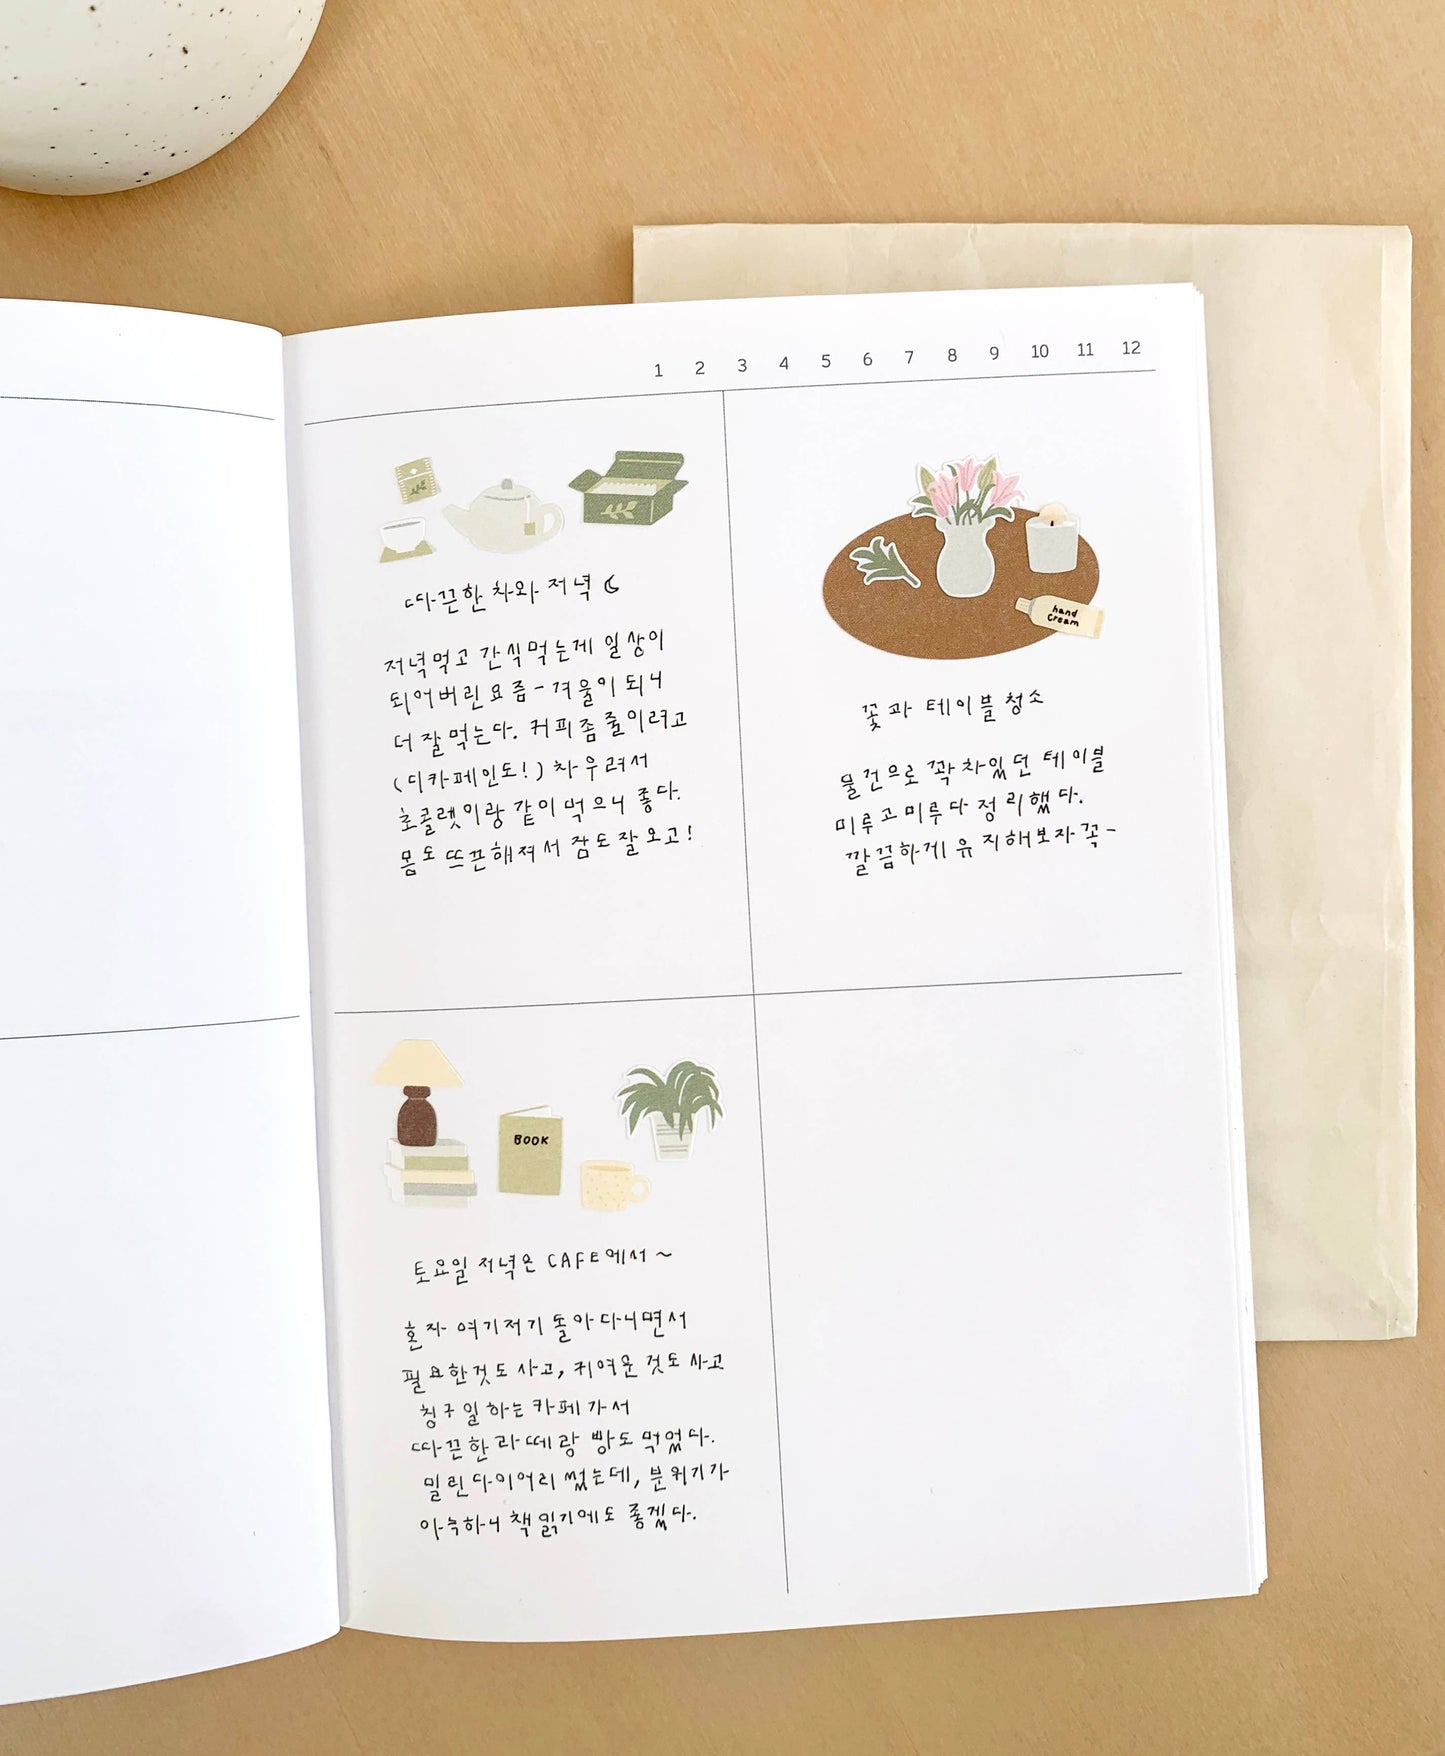 1 2 3 4 5 6 7 8 9 10 11 12
따끈한 차와 저녁
저녁먹고 간식먹는게 일상이
되어버린요즘- 겨울이 되니
더 잘먹는다. 커피좀줄이려고
(디카페인도!) 차우려서
초콜렛이랑 같이먹으니 좋다.
몸도 뜨끈해져서 잠도잘오고!
hand
cream
꽃과 테이블청소
물건으로 꽉차있던 테이블
미루고미루다 정리했다.
깔끔하게 유지해보자 꼭-
BOOK
토요일 저녁은 CAFE에서~
혼자 여기저기 돌아다니면서
필요한것도 사고, 귀여운 것도 사고
칭구 일하는 카페가서
따끈한 라떼랑 빵도 먹었다.
밀린 다이어리 썼는데, 분위기가
아늑하니 책읽기에도 좋겠다.